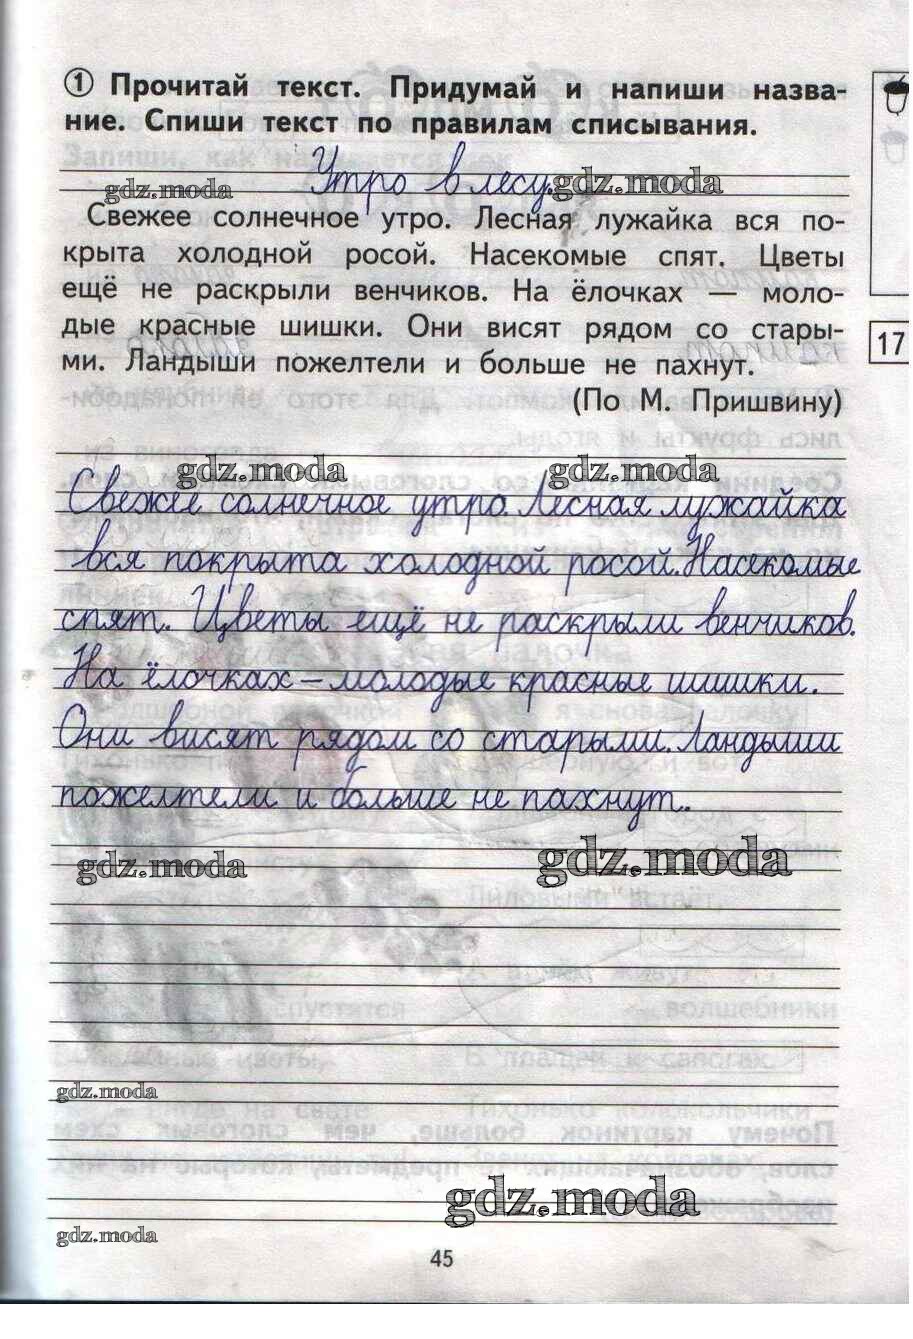 ① Прочитай текст. Придумай и напиши назва-
ние. Спиши текст по правилам списывания.
Утро в лесу.
gdz.moda gdz.moda
Свежее солнечное утро. Лесная лужайка вся по-
крыта холодной росой. Насекомые спят. Цветы
ещё не раскрыли венчиков. На ёлочках — моло-
дые красные шишки. Они висят рядом со стары-
17
ми. Ландыши пожелтели и больше не пахнут.
(По М. Пришвину)
gdz.moda gdz.moda
Свежее солнечное утро. Лесная лужайка
вся покрыта холодной росой. Насекомые
спят. Цветы ещё не раскрыли венчиков.
На ёлочках – молодые красные шишки.
Они висят рядом со старыми. Ландыши
пожелтели и больше не пахнут.
gdz.moda gdz.moda
gdz.moda
gdz.moda
gdz.moda
45